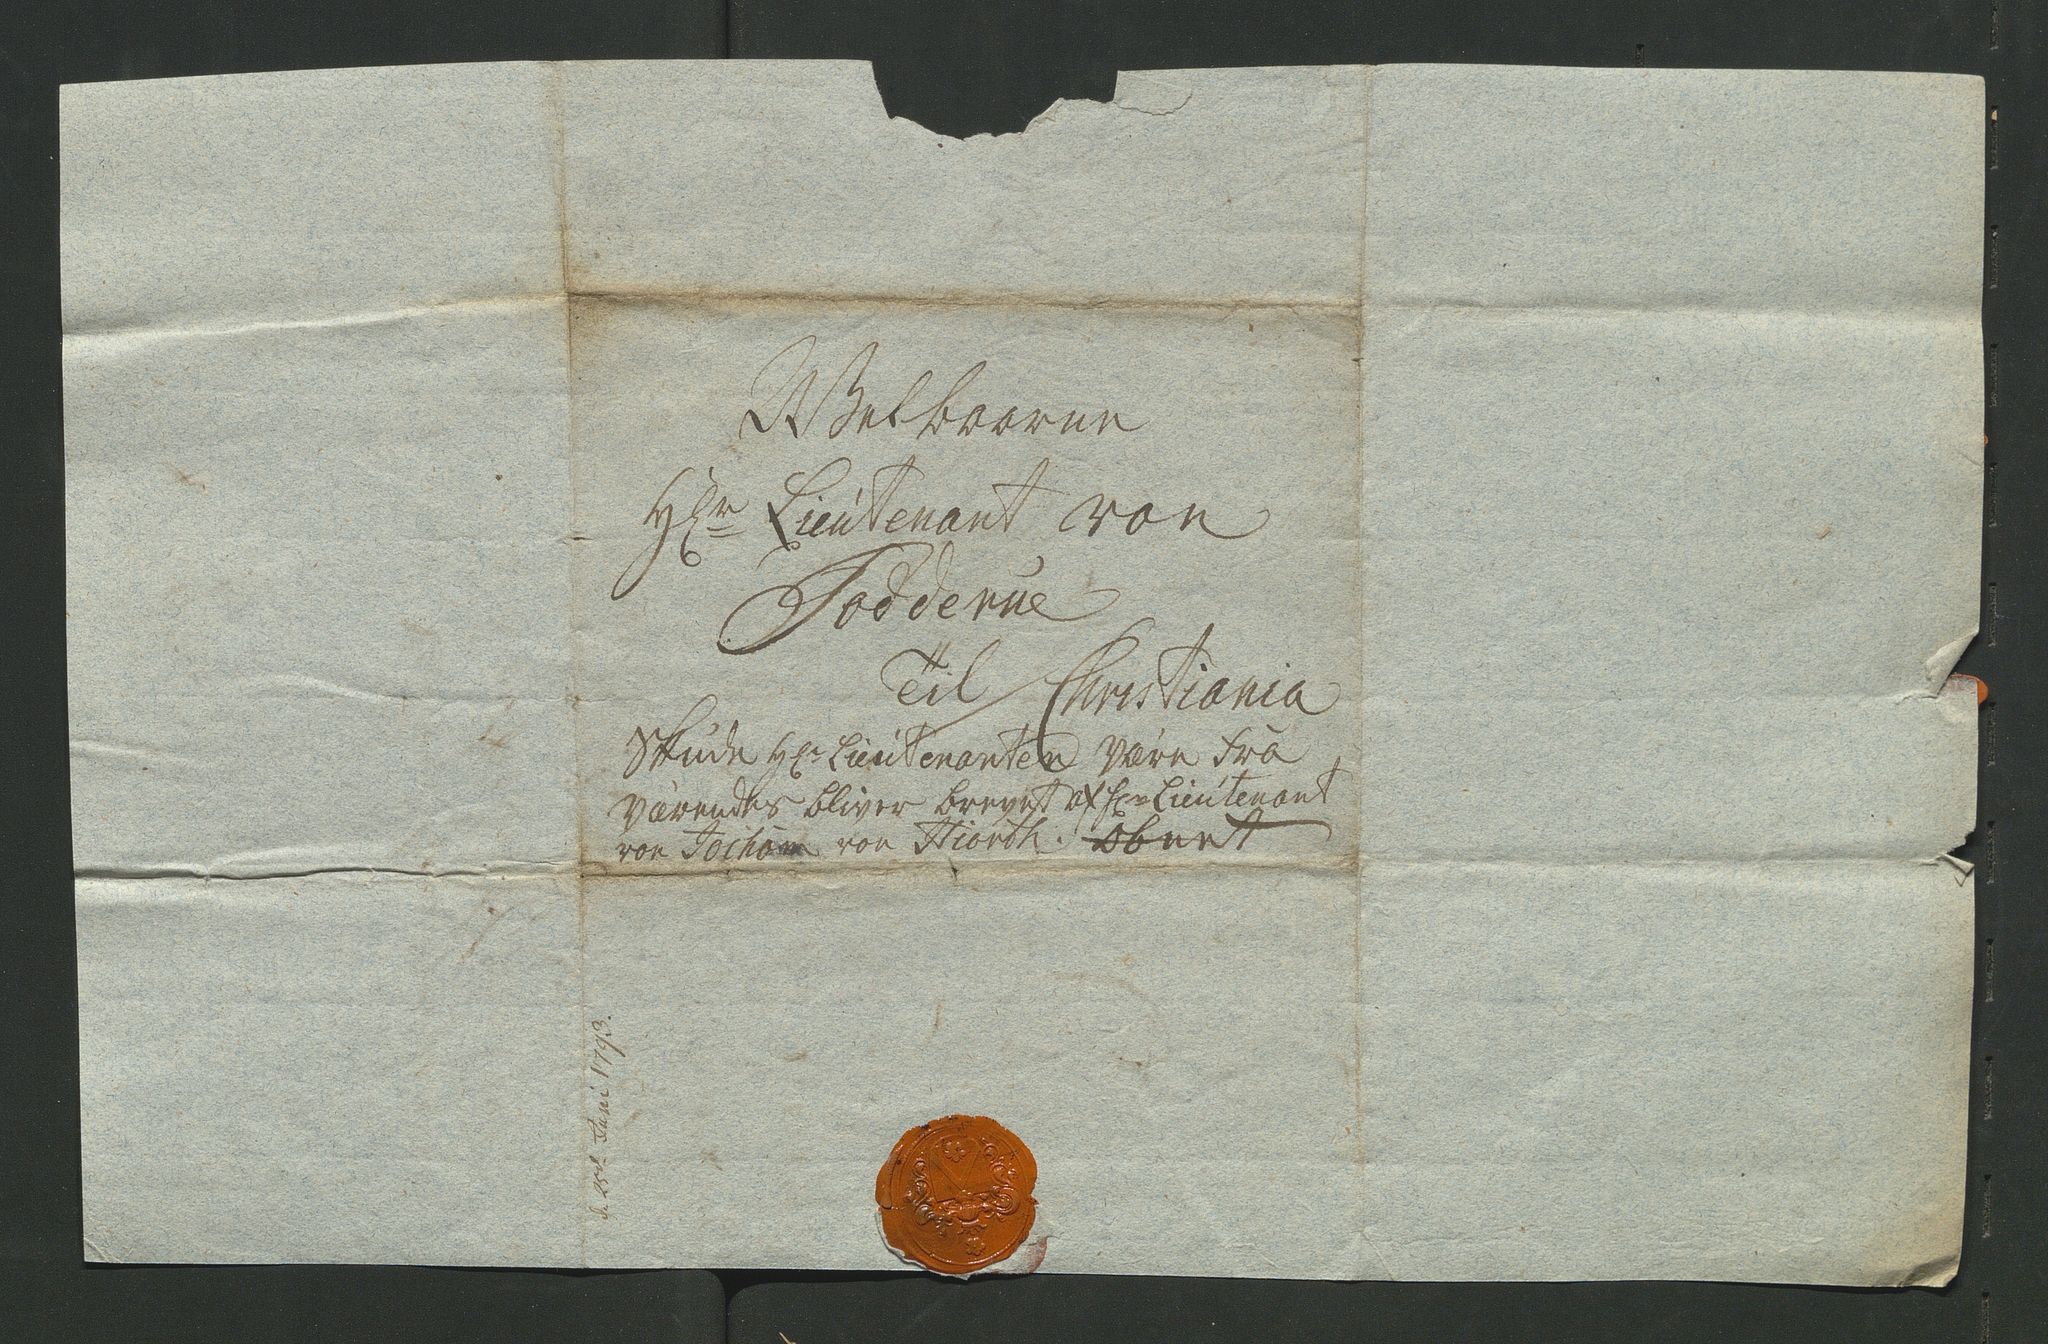 Welbaarne
Hr Lieutenant von
Todderue
Til Christiania
Skude Hr Lieutenanten være fra
værendes bliver brevet af Hr Lieutenant
von Jochom von Hiorth. Øbnet
d. 25d. Juni 1793.